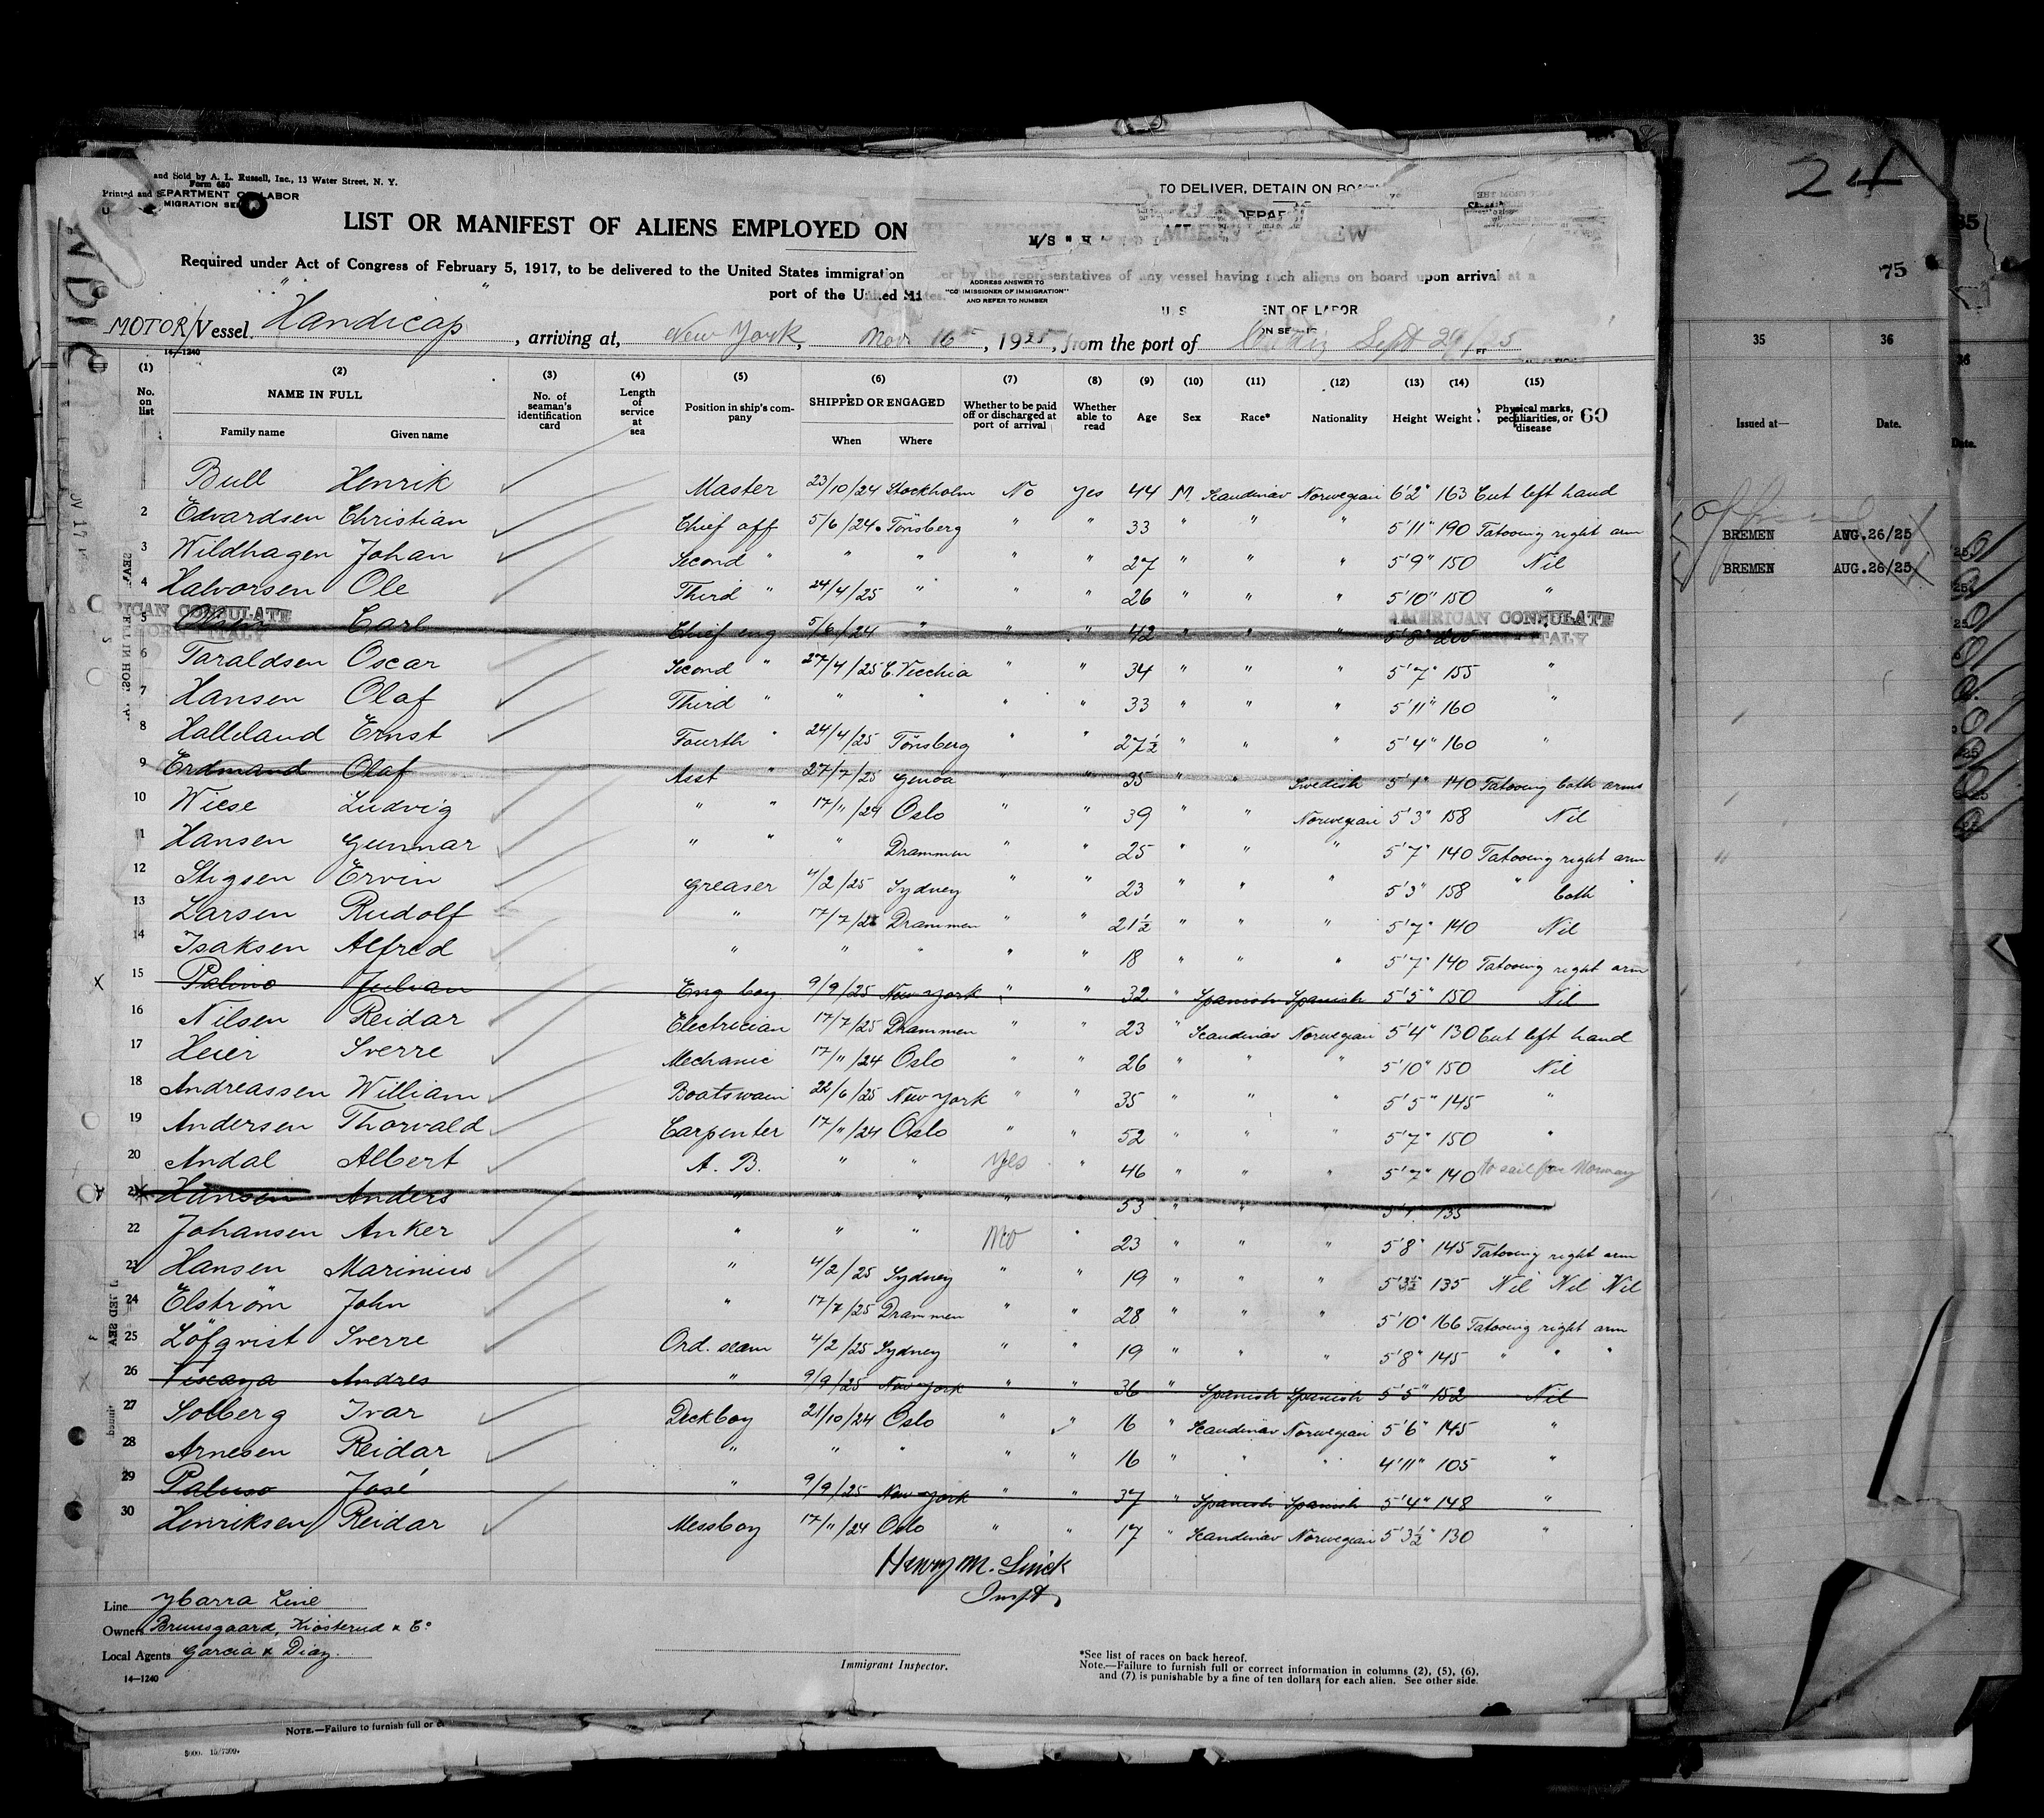 and Sold by A. L. Russell, Inc., 13 Water Street, N. Y.
Form 680
Printed and
DEPARTMENT OF LABOR
MIGRATION SE
TO DELIVER, DETAIN ON BOA
DEPA
LIST OR MANIFEST OF ALIENS EMPLOYED ON
M/S "H
MBERS OF CREW
Required under Act of Congress of February 5, 1917, to be delivered to the United States immigration
or by the representatives of any vessel having such aliens on board upon arrival at a
port of the United States.
ADDRESS ANSWER TO
"COMMISSIONER OF IMMIGRATION"
AND REFER TO NUMBER
ENT OF LABOR
MOTOR/Vessel "Handicap", arriving at, New York, Nov. 16th, 1925, from the port of Cadiz Sept 29/25
14-1240
(1) (2) (3) (4) (5) (6) (7) (8) (9) (10) (11) (12) (13) (14) (15)
No. on list NAME IN FULL Family name Given name No. of seaman's identification card Length of service at sea Position in ship's company SHIPPED OR ENGAGED When Where Whether to be paid off or discharged at port of arrival Whether able to read Age Sex Race* Nationality Height Weight Physical marks, peculiarities, or disease 60
Bull Henrik Master 23/10/24 Stockholm No Yes 44 M. Scandinav Norwegian 6'2" 163 Cut left hand
2 Edvardsen Christian Chief off 5/6/24 Tönsberg " " 33 " " " 5'11" 190 Tatooing right arm
3 Wildhagen Johan Second " " " " " 27 " " " 5'9" 150 Nil
4 Halvorsen Ole Third " 24/4/25 " " " 26 " " " 5'10" 150 "
AMERICAN CONSULATE
ITALY
5 Carl Chief eng 5/6/24 " " " 42 " " " 5'8"
AMERICAN CONSULATE
ITALY
6 Taraldsen Oscar Second " 27/4/25 C. Vecchia " " 34 " " " 5'7" 155 "
7 Hansen Olaf Third " " " " " 33 " " " 5'11" 160 "
8 Halleland Ernst Fourth " 24/4/25 Tönsberg " " 27½ " " " 5'4" 160 "
9 Erdmand Olaf Asst " 27/7/25 Genoa " " 35 " " Swedish 5'1" 140 Tatooing both arms
10 Wiese Ludvig " " 17/11/24 Oslo " " 39 " " Norwegian 5'3" 158 Nil
11 Hansen Gunnar " " " Drammen " " 25 " " " 5'7" 140 Tatooing right arm
12 Stigsen Ervin Greaser 4/2/25 Sydney " " 23 " " " 5'3" 158 " both "
13 Larsen Rudolf " 17/7/25 Drammen " " 21½ " " " 5'7" 140 Nil
14 Isaksen Alfred " " " " " 18 " " " 5'7" 140 Tatooing right arm
15 Palino Julian Eng boy 9/9/25 New York " " 32 " Spanish Spanish 5'5" 150 Nil
16 Nilsen Reidar Electrician 17/7/25 Drammen " " 23 " Scandinav Norwegian 5'4" 130 Cut left hand
17 Heier Sverre Mechanic 17/11/24 Oslo " " 26 " " " 5'10" 150 Nil
18 Andreassen William Boatswain 22/6/25 New York " " 35 " " " 5'5" 145 "
19 Andersen Thorvald Carpenter 17/11/24 Oslo " " 52 " " " 5'7" 150 "
20 Andal Albert A. B. " " Yes " 46 " " " 5'7" 140 to sail for Norway
21 Hansen Anders " " " " " 53 " " " 135 "
22 Johansen Anker " " " No " 23 " " " 5'8" 145 Tatooing right arm
23 Hansen Marinius " 4/2/25 Sydney " " 19 " " " 5'3½ 135 Nil Nil Nil
24 Elström John " 17/7/25 Drammen " " 28 " " " 5'10" 166 Tatooing right arm
25 Löfqvist Sverre Ord. seam 4/2/25 Sydney " " 19 " " " 5'8" 145 " " "
26 Viscaya Andres " 9/9/25 New York " " 36 " Spanish Spanish 5'5" 152 Nil
27 Solberg Ivar Deckboy 21/10/24 Oslo " " 16 " Scandinav Norwegian 5'6" 145 "
28 Arnesen Reidar " " " " " 16 " " " 4'11" 105 "
29 José " 9/9/25 New York " " 37 " Spanish Spanish 5'4" 148 "
30 Henriksen Reidar Messboy 17/11/24 Oslo " " 17 " Scandinav Norwegian 5'3½" 130 "
Henry M.
Inspt.
Line Ybarra Line
Owners Bruusgaard, Kiösterud & Co
Local Agents Garcia & Diaz.
14-1240
Immigrant Inspector.
*See list of races on back hereof.
Note.—Failure to furnish full or correct information in columns (2), (5), (6),
and (7) is punishable by a fine of ten dollars for each alien. See other side.
NOTE.—Failure to furnish full or c
24
75
35 36
Issued at— Date.
BREMEN AUG.26/25
BREMEN AUG.26/25
35
36
Date.